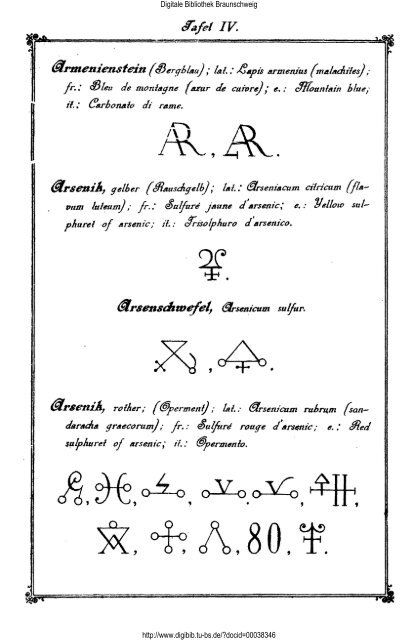 Digitale Bibliothek Braunschweig
Tafel IV.
Armenienstein (Bergblau); lat.: Lapis armenius (malachites);
fr.: Bleu de montagne (azur de cuivre); e.: Mountain blue;
it.: Carbonato di rame.
Arsenik, gelber (Rauschgelb); lat.: Arseniacum citricum (fla-
vum luteum); fr.: Sulfuré jaune d'arsenic; e.: Yellow sul-
phuret of arsenic; it.: Trisolphuro d'arsenico.
Arsenschwefel, Arsenicum sulfur.
Arsenik, rother; (Operment); lat.: Arsenicum rubrum (san-
daracha graecorum); fr.: Sulfuré rouge d'arsenic; e.: Red
sulphuret of arsenic; it.: Opermento.
80.
http://www.digibib.tu-bs.de/?docid=00038346